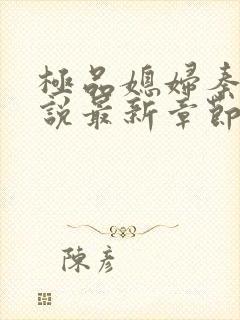 極品媳婦秦
說最新章節
陳彥